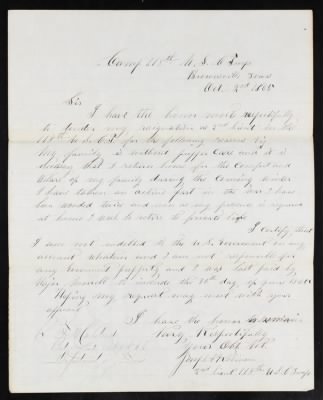 Camp 118th U.S.C Troops
Brownsville Texas
Oct 1865
Sir
I have the honor most respectfully
to tender my resignation as 2nd Lieut in the
118th U.S.C.T. for the following reasons Viz
My family is without proper care and it is
necessary that I return home for the comfort and
welfare of my family during the coming winter
I have taken an active part in the war I have
been wounded twice and now as my presence is required
at home I wish to retire to private life
I certify that
I am not indebted to the U.S. Government on any
account whatever and I am not responsible for
any Government property and I was last paid by
Major to include the 30th day of June 1865
Hoping my request may meet with your
approval
I have the honor to remain
Very Respectfully
Your Obt Svt
Joseph
2nd Lieut 118th U.S.C Troops